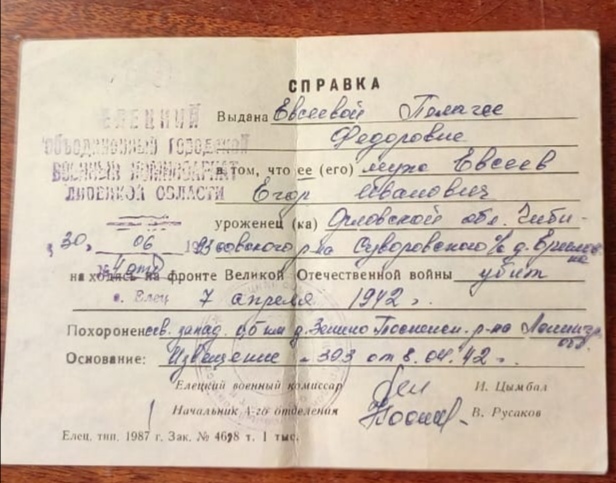 СПРАВКА
ЕЛЕЦКИЙ
Объединенный городской
ВОЕННЫЙ КОМИССАРИАТ
ЛИПЕЦКОЙ ОБЛАСТИ
Выдана Евсеевой Пелагее
Федоровне
в том, что ее (его) муж Евсеев
Егор Иванович
уроженец (ка) Орловской обл.
30 06 р-на Суворовского с/с д.
находясь на фронте Великой Отечественной войны убит
г. Елец 7 апреля 1942 г.
Похоронен сев. запад. 0,5 км д. Зенино р-на Ленингр.
обл.
Основание: Извещение № 393 от 8.04.42 г.
Елецкий военный комиссар И. Цымбал
Начальник 4-го отделения В. Русаков
Елец. тип. 1987 г. Зак. № 4698 т. 1 тыс.